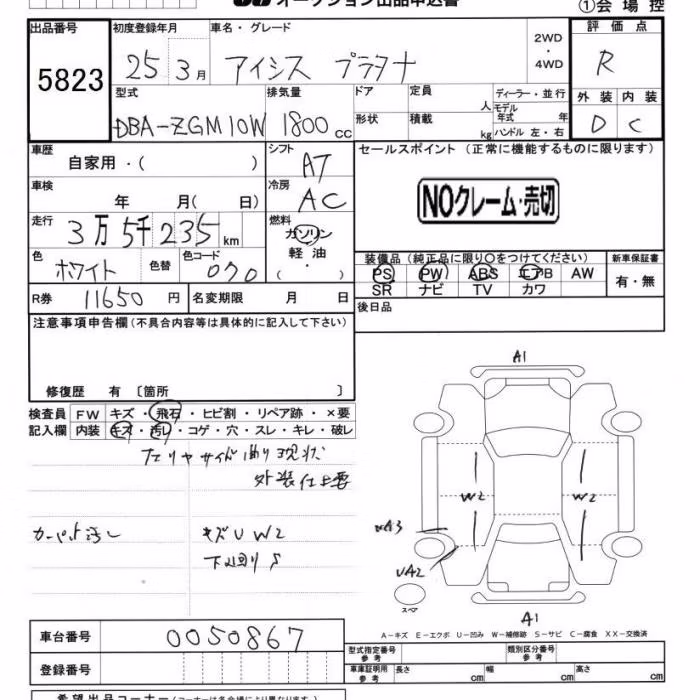 オークション出品申込書
①会場控
出品番号
5823
初度登録年月
25年3月
車名・グレード
アイシス プラタナ
2WD・4WD
評価点
R
型式
DBA-ZGM10W
排気量
1800cc
ドア
形状
定員 人
積載 kg
ディーラー・並行
モデル年式 年
ハンドル 左・右
外装 内装
D C
車歴
自家用・( )
シフト
AT
セールスポイント(正常に機能するものに限ります)
NOクレーム・売切
車検
年 月( 日)
冷房
AC
走行
3万5千235km
燃料
ガソリン
軽油
・
( )
色
ホワイト
色替
色コード
070
装備品(純正品に限り○をつけてください)
PS PW ABS エアB AW
SR ナビ TV カワ
新車保証書
有・無
R券
11650円
名変期限 月 日
後日品
注意事項申告欄(不具合内容等は具体的に記入して下さい)
修復歴 有〔箇所 〕
検査員記入欄
FW キズ・飛石・ヒビ割・リペア跡・×要
内装 キズ・汚レ・コゲ・穴・スレ・キレ・破レ
曲り現状
外装仕上要
カーペット汚レ
キズUW2
下回りS
A1
W2
W2
A3
UA2
スペア
A1
A-キズ E-エクボ U-凹み W-補修跡 S-サビ C-腐食 XX-交換済
車台番号
0050867
登録番号
型式指定番号 参考
類別区分番号 参考
車庫証明用 参考
長さ cm
幅 cm
高さ cm
希望出品コーナー